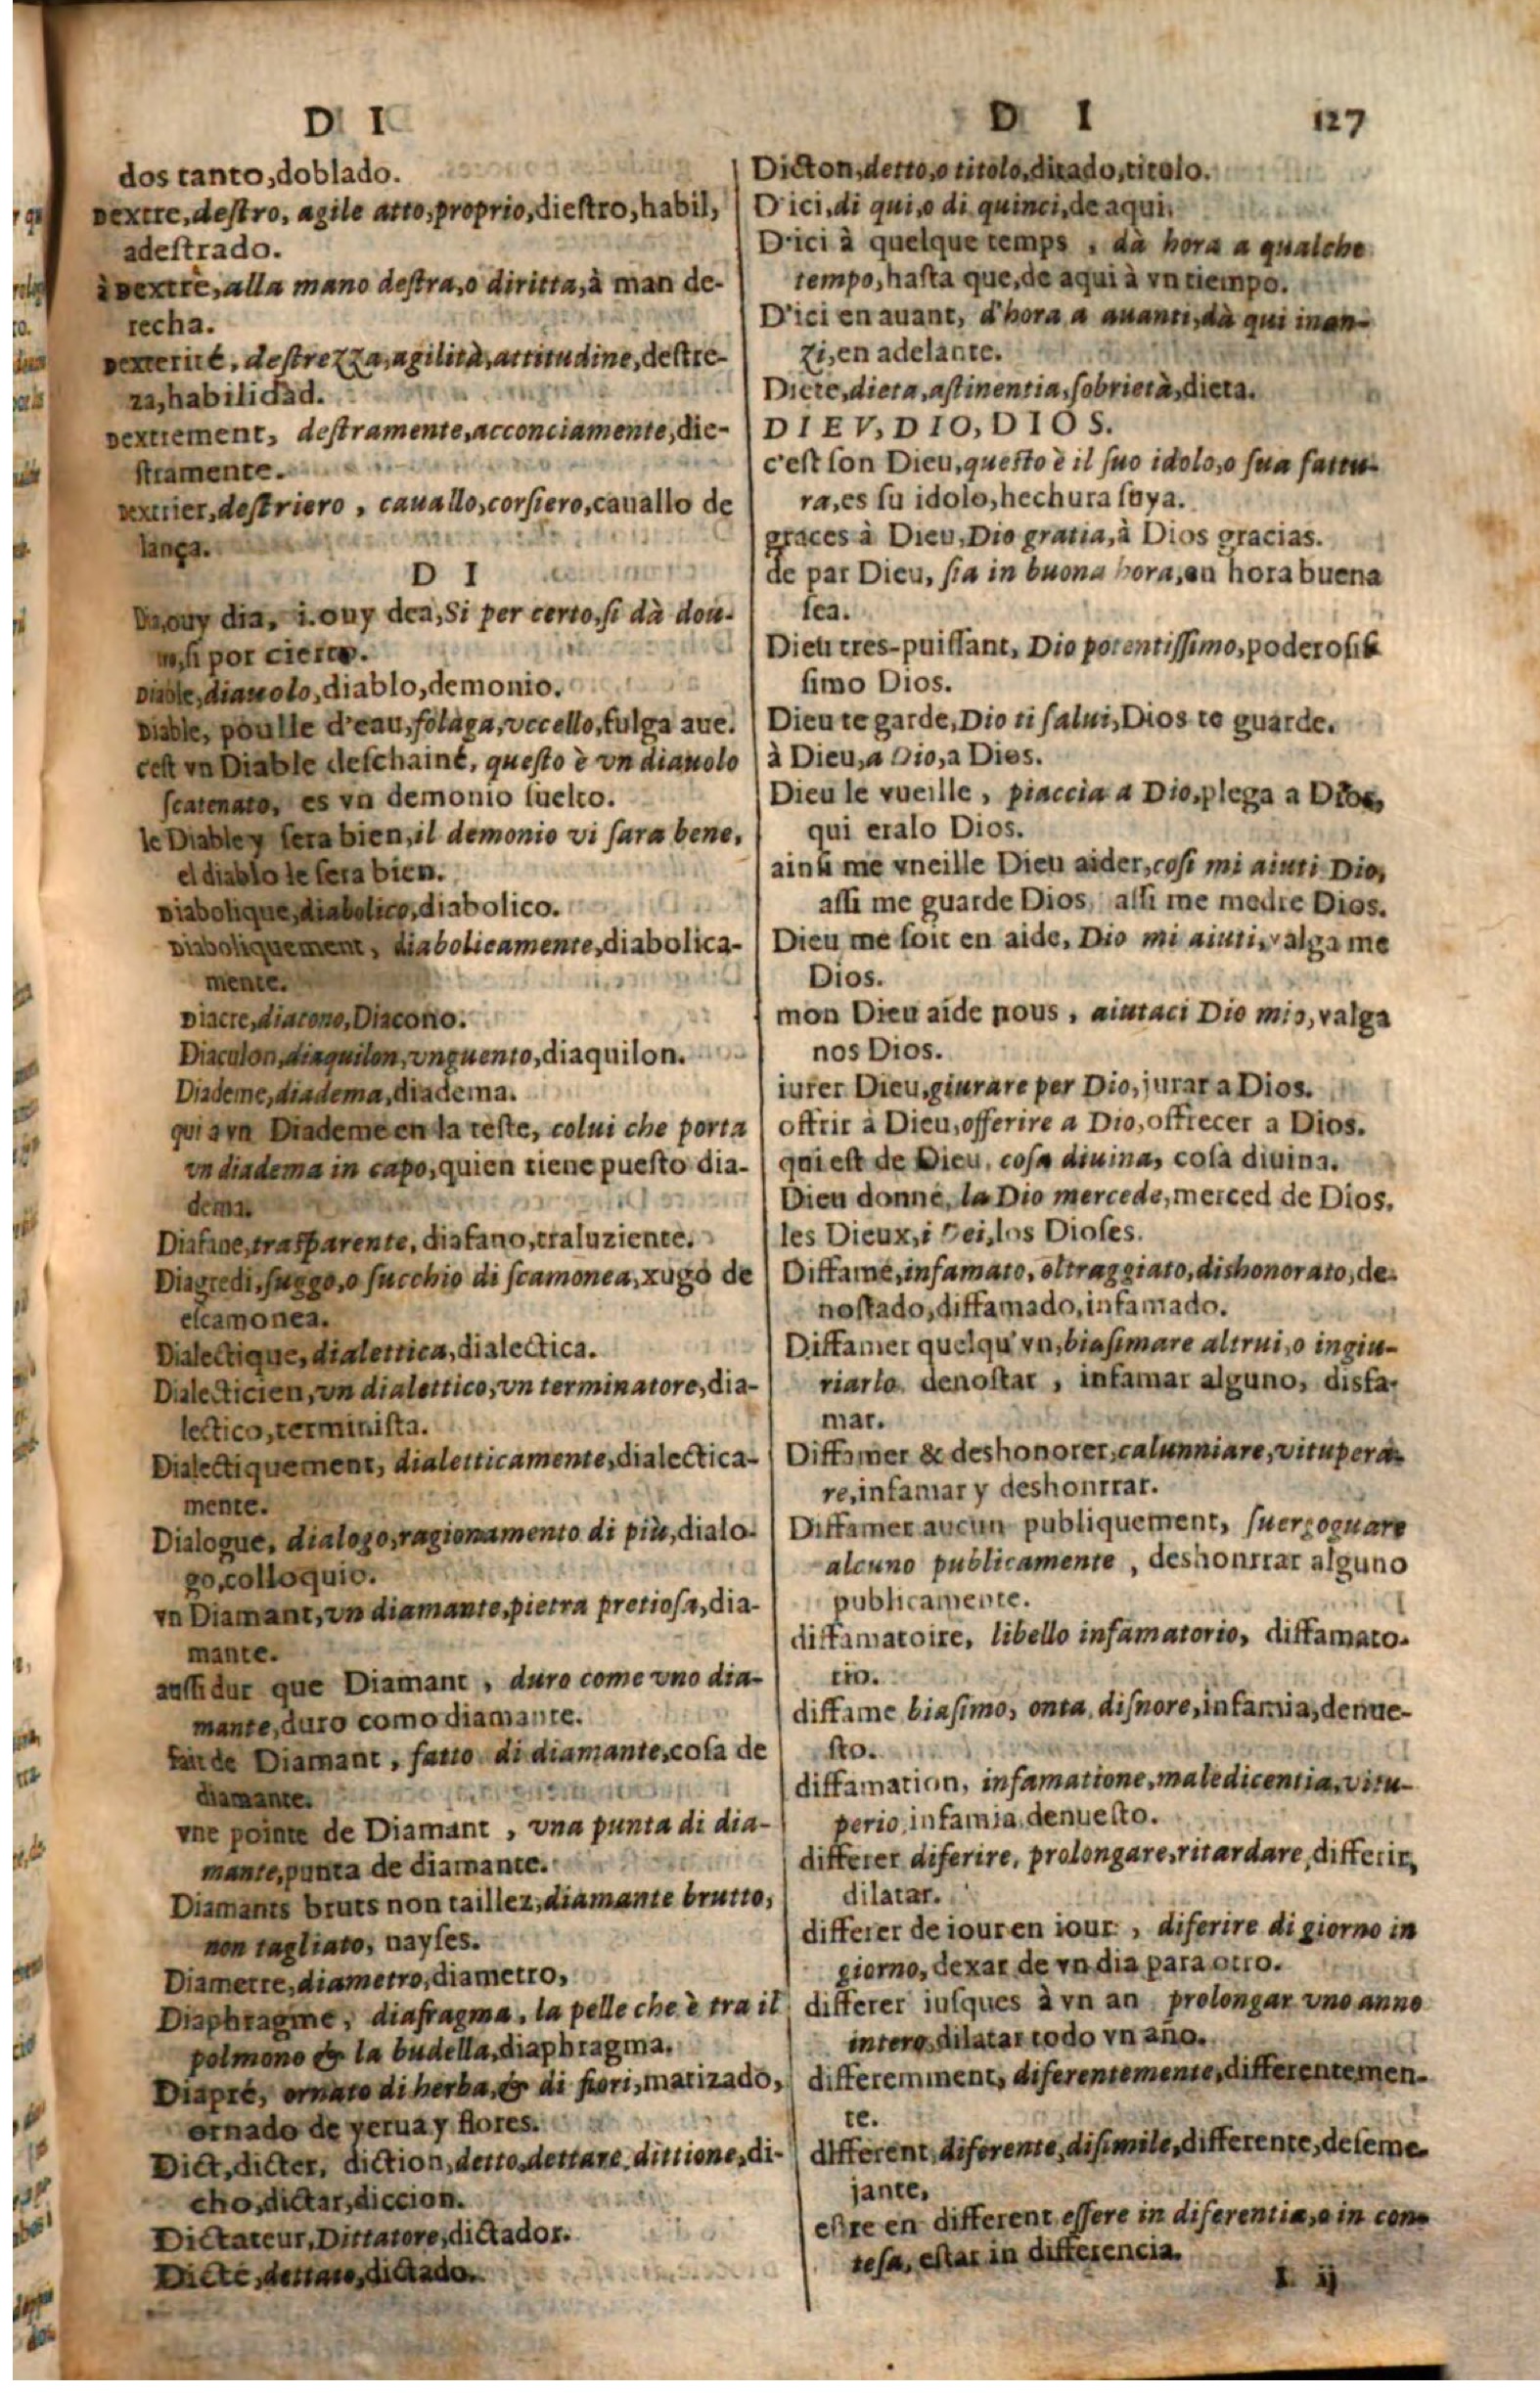 D I
dos tanto,doblado.
Dextre, destro, agile atto, proprio, diestro, habil,
adestrado.
à Dextre, alla mano destra, o diritta, à man de-
recha.
Dexterité, destrezza, agilità, attitudine, destre-
za, habilidad.
Dextrement, destramente, acconciamente, die-
stramente.
Dextrier, destriero, cauallo, corsiero, cauallo de
lança.
D I
Dia, ouy dia, i. ouy dea, Si per certo, si dà douero, si por cierto.
Diable, diauolo, diablo, demonio.
Diable, poulle d'eau, folaga, vccello, fulga aue.
c'est vn Diable deschainé, questo è vn diauolo
scatenato, es vn demonio suelto.
le Diable y sera bien, il demonio vi sara bene,
el diablo le sera bien.
Diabolique, diabolico, diabolico.
Diaboliquement, diabolicamente, diabolica-
mente.
Diacre, diacono, Diacono.
Diaculon, diaquilon, vnguento, diaquilon.
Diademe, diadema, diadema.
qui a vn Diademe en la teste, colui che porta
vn diadema in capo, quien tiene puesto dia-
dema.
Diafane, trasparente, diafano, traluziente.
Diagredi, suggo, o succhio di scamonea, xugo de
escamonea.
Dialectique, dialettica, dialectica.
Dialecticien, vn dialettico, vn terminatore, dia-
lectico, terminista.
Dialectiquement, dialetticamente, dialectica-
mente.
Dialogue, dialogo, ragionamento di più, dialo-
go, colloquio.
vn Diamant, vn diamante, pietra pretiosa, dia-
mante.
aussi dur que Diamant, duro come vno dia-
mante, duro como diamante.
fait de Diamant, fatto di diamante, cosa de
diamante.
vne pointe de Diamant, vna punta di dia-
mante, punta de diamante.
Diamants bruts non taillez, diamante brutto,
non tagliato, nayses.
Diametre, diametro, diametro,
Diaphragme, diafragma, la pelle che è tra il
polmono & la budella, diaphragma.
Diapré, ornato di herba, & di fiori, matizado,
ornado de yerua y flores.
Dict, dicter, diction, detto, dettare, dittione, di-
cho, dictar, diccion.
Dictateur, Dittatore, dictador.
Dicté, dettato, dictado.
D I 127
Dicton, detto, o titolo, ditado, titulo.
D'ici, di qui, o di quinci, de aqui.
D'ici à quelque temps, dà hora a qualche
tempo, hasta que, de aqui à vn tiempo.
D'ici en auant, d'hora a auanti, dà qui inan-
zi, en adelante.
Diete, dieta, astinentia, sobrietà, dieta.
DIEV, DIO, DIOS.
c'est son Dieu, questo è il suo idolo, o sua fattu-
ra, es su idolo, hechura suya.
graces à Dieu, Dio gratia, à Dios gracias.
de par Dieu, sia in buona hora, en hora buena
sea.
Dieu tres-puissant, Dio potentissimo, poderosis-
simo Dios.
Dieu te garde, Dio ti salui, Dios te guarde.
à Dieu, a Dio, a Dios.
Dieu le vueille, piaccia a Dio, plega a Dios,
qui eralo Dios.
ainsi me vueille Dieu aider, cosi mi aiuti Dio,
assi me guarde Dios, assi me medre Dios.
Dieu me soit en aide, Dio mi aiuti, valga me
Dios.
mon Dieu aide nous, aiutaci Dio mio, valga
nos Dios.
iurer Dieu, giurare per Dio, jurar a Dios.
offrir à Dieu, offerire a Dio, offrecer a Dios.
qui est de Dieu, cosa diuina, cosa diuina.
Dieu donné, la Dio mercede, merced de Dios.
les Dieux, i Dei, los Dioses.
Diffamé, infamato, oltraggiato, dishonorato, de-
nostado, diffamado, infamado.
Diffamer quelqu'vn, biasimare altrui, o ingiu-
riarlo, denostar, infamar alguno, disfa-
mar.
Diffamer & deshonorer, calunniare, vitupera-
re, infamar y deshonrrar.
Diffamer aucun publiquement, suergognare
alcuno publicamente, deshonrrar alguno
publicamente.
diffamatoire, libello infamatorio, diffamato-
rio.
diffame biasimo, onta, disnore, infamia, denue-
sto.
diffamation, infamatione, maledicentia, vitu-
perio, infamia, denuesto.
differer diferire, prolongare, ritardare, differir,
dilatar.
differer de iour en iour, diferire di giorno in
giorno, dexar de vn dia para otro.
differer iusques à vn an prolongar vno anno
intero, dilatar todo vn año.
differemment, diferentemente, differentemen-
te.
different, diferente, disimile, differente, deseme-
jante,
estre en different essere in diferentia, o in con-
tesa, estar in differencia.
I ij